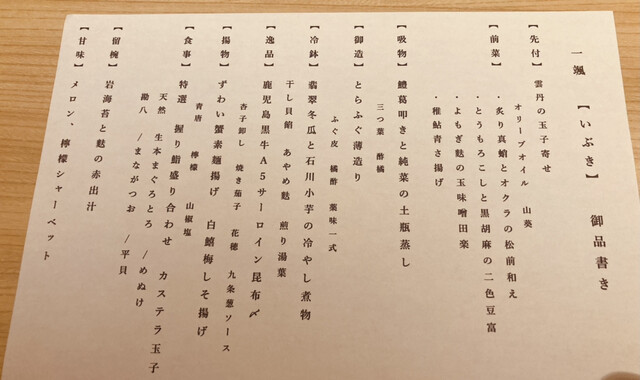 一颯 【いぶき】 御品書き
【先付】 雲丹の玉子寄せ
オリーブオイル 山葵
【前菜】 ・炙り真蛸とオクラの松前和え
・とうもろこしと黒胡麻の二色豆富
・よもぎ麩の玉味噌田楽
・稚鮎青さ揚げ
【吸物】 鱧葛叩きと純菜の土瓶蒸し
三つ葉 酢橘
【御造】 とらふぐ薄造り
ふぐ皮 橘酢 薬味一式
【冷鉢】 翡翠冬瓜と石川小芋の冷やし煮物
干し貝餡 あやめ麩 煎り湯葉
【逸品】 鹿児島黒牛A5サーロイン昆布〆
杏子卸し 焼き茄子 花穂 九条葱ソース
【揚物】 ずわい蟹素麺揚げ 白鱚梅しそ揚げ
青唐 檸檬 山椒塩
【食事】 特選 握り鮨盛り合わせ カステラ玉子
天然 生本まぐろとろ /めぬけ
勘八 /まながつお /平貝
【留椀】 岩海苔と麩の赤出汁
【甘味】 メロン、檸檬シャーベット